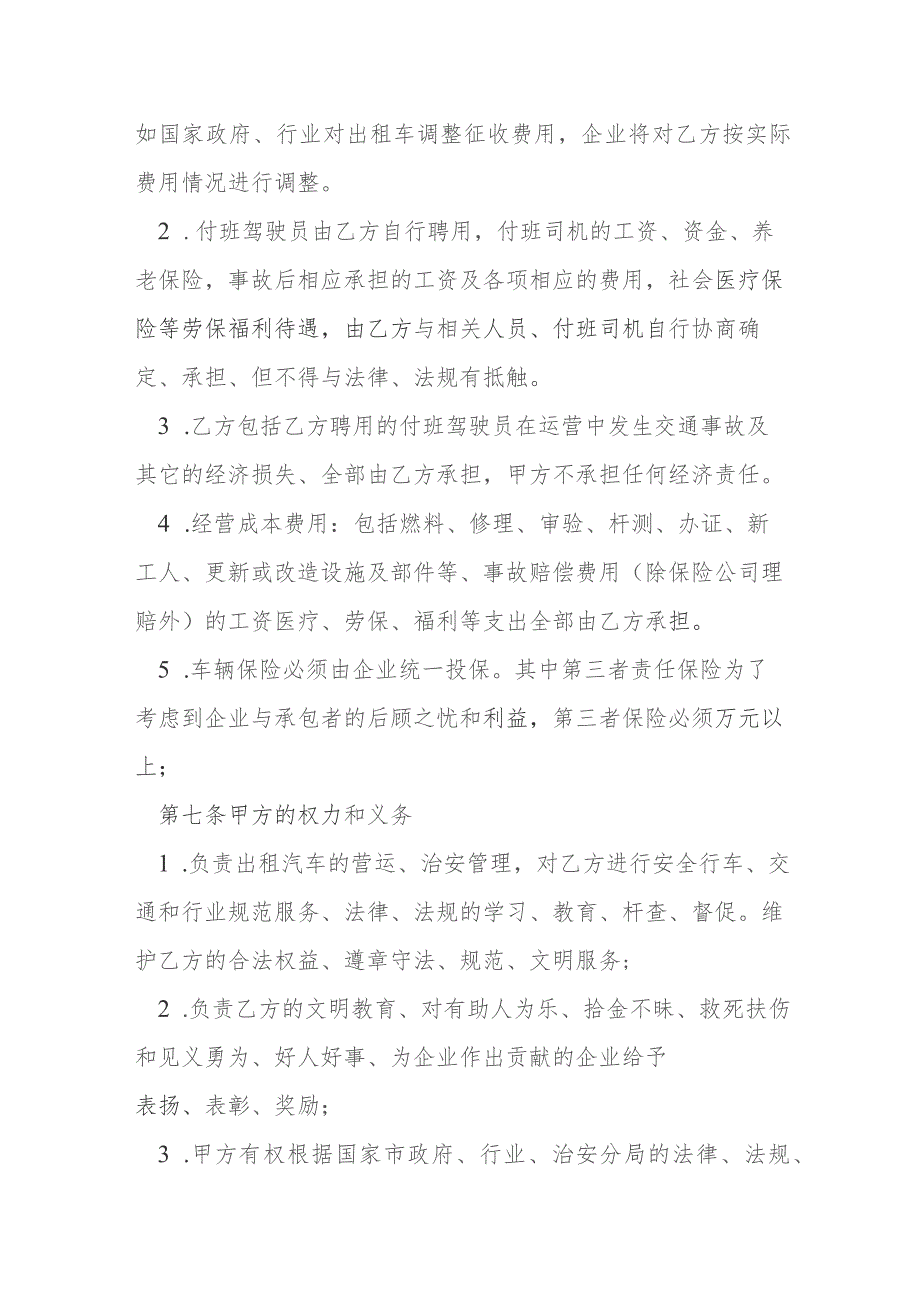 如国家政府、行业对出租车调整征收费用，企业将对乙方按实际
费用情况进行调整。
2 .付班驾驶员由乙方自行聘用，付班司机的工资、资金、养
老保险，事故后相应承担的工资及各项相应的费用，社会医疗保
险等劳保福利待遇，由乙方与相关人员、付班司机自行协商确
定、承担、但不得与法律、法规有抵触。
3 .乙方包括乙方聘用的付班驾驶员在运营中发生交通事故及
其它的经济损失、全部由乙方承担，甲方不承担任何经济责任。
4 .经营成本费用：包括燃料、修理、审验、杆测、办证、新
工人、更新或改造设施及部件等、事故赔偿费用（除保险公司理
赔外）的工资医疗、劳保、福利等支出全部由乙方承担。
5 .车辆保险必须由企业统一投保。其中第三者责任保险为了
考虑到企业与承包者的后顾之忧和利益，第三者保险必须万元以
上；
第七条甲方的权力和义务
1 .负责出租汽车的营运、治安管理，对乙方进行安全行车、交
通和行业规范服务、法律、法规的学习、教育、杆查、督促。维
护乙方的合法权益、遵章守法、规范、文明服务；
2 .负责乙方的文明教育、对有助人为乐、拾金不昧、救死扶伤
和见义勇为、好人好事、为企业作出贡献的企业给予
表扬、表彰、奖励；
3 .甲方有权根据国家市政府、行业、治安分局的法律、法规、